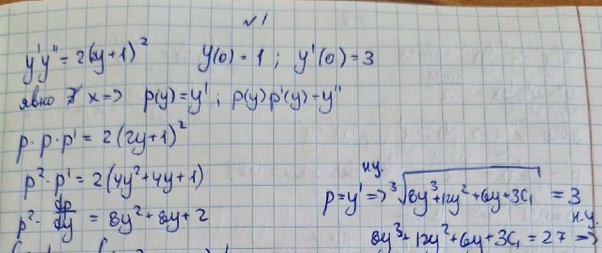 №1
y'y'' = 2(2y+1)² y(0) = 1 ; y'(0) = 3
явно ∄ x => p(y) = y' ; p(y)p'(y) = y''
p·p·p' = 2(2y+1)²
p²·p' = 2(4y²+4y+1)
p²· dp/dy = 8y²+8y+2
н.у.
p=y' => ³√8y³+12y²+6y+3C₁ = 3
н.у.
8y³+12y²+6y+3C₁ = 27 =>